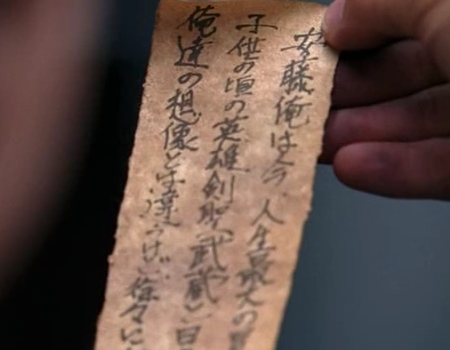 安藤俺は今、人生最大の
子供の頃の英雄剣聖“武蔵”
俺達の想像とは違うけど、徐々に